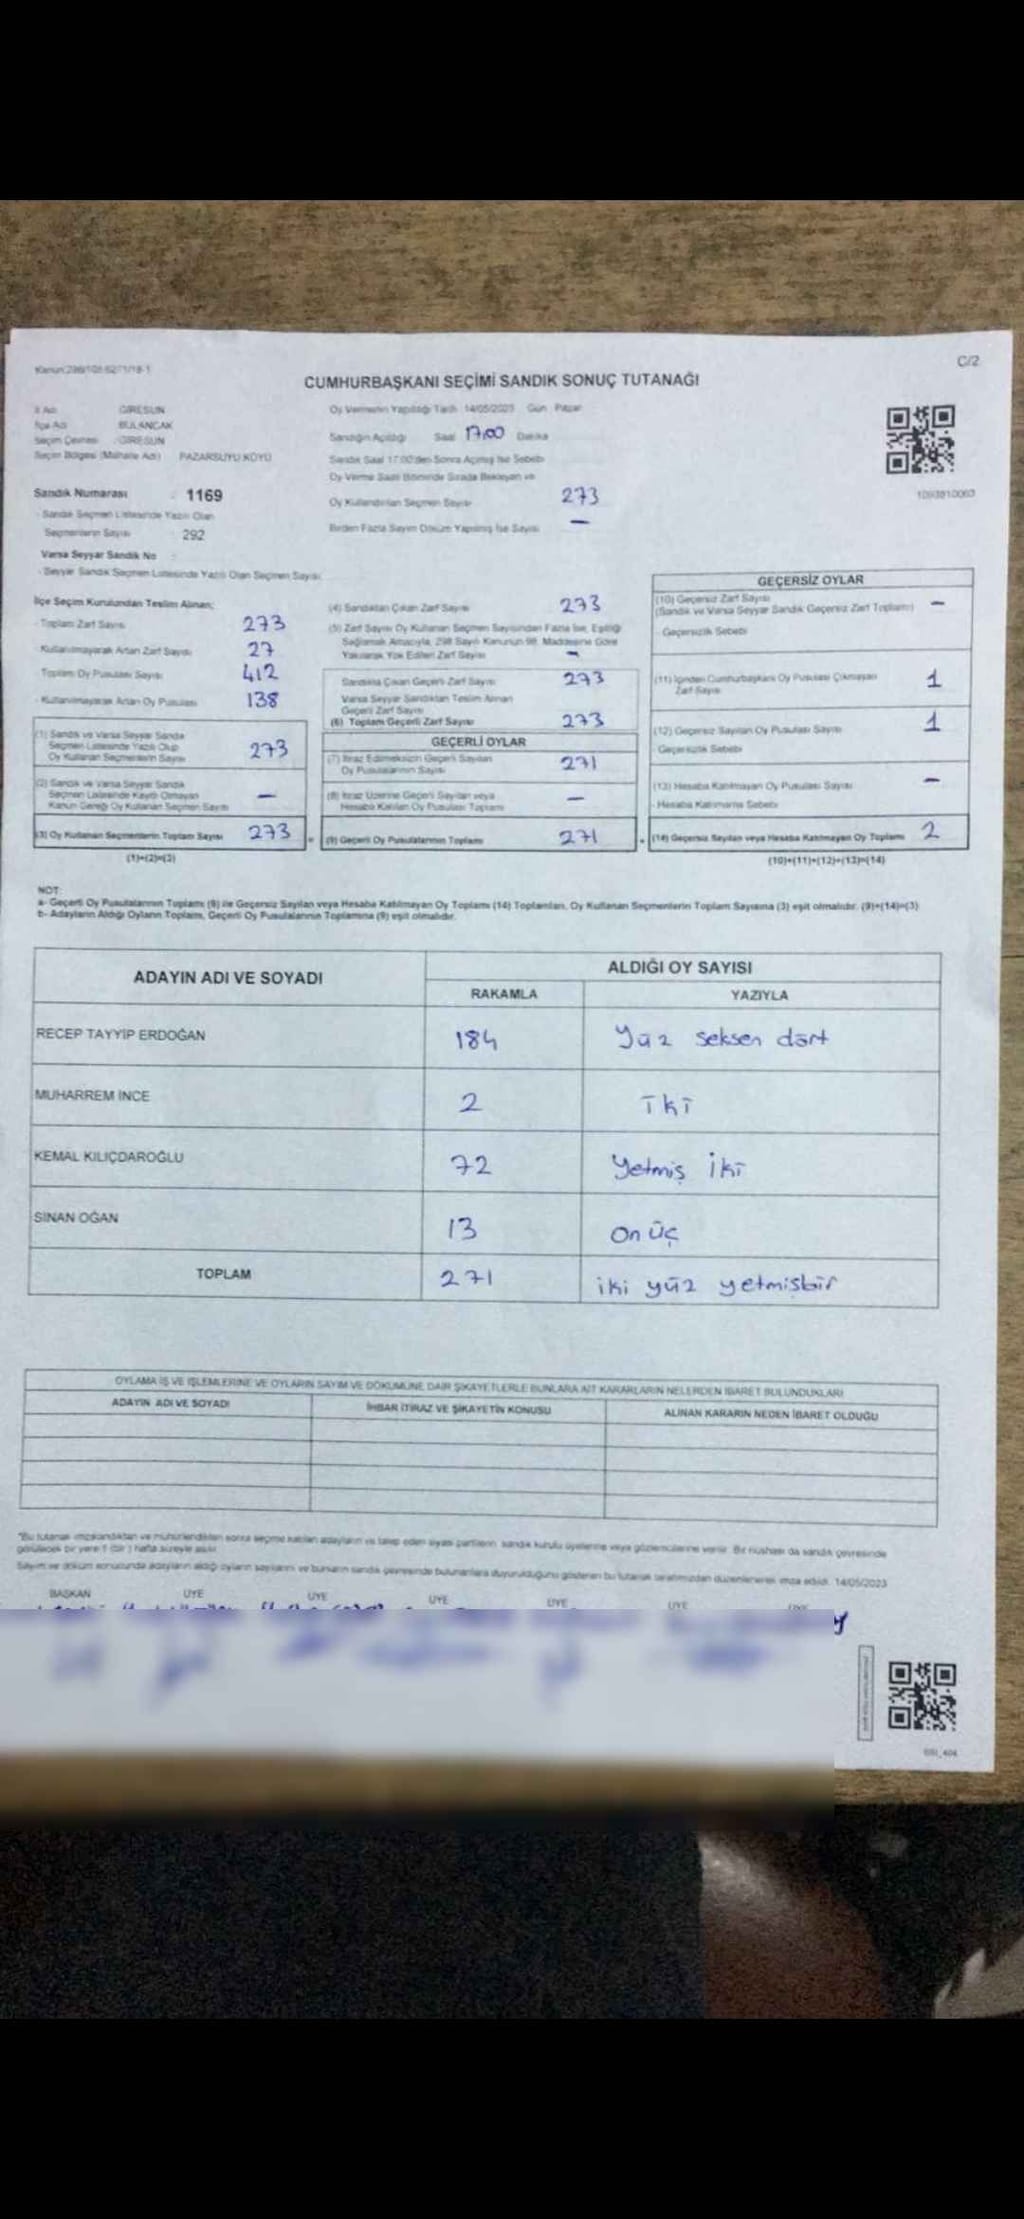 Kanun:298/105 6271/18-1
C/2
CUMHURBAŞKANI SEÇİMİ SANDIK SONUÇ TUTANAĞI
İl Adı GİRESUN
İlçe Adı BULANCAK
Seçim Çevresi : GİRESUN
Seçim Bölgesi (Mahalle Adı) PAZARSUYU KÖYÜ
Sandık Numarası : 1169
- Sandık Seçmen Listesinde Yazılı Olan
Seçmenlerin Sayısı : 292
Varsa Seyyar Sandık No :
- Seyyar Sandık Seçmen Listesinde Yazılı Olan Seçmen Sayısı:
Oy Vermenin Yapıldığı Tarih 14/05/2023 Gün Pazar
Sandığın Açıldığı Saat 17:00 Dakika
Sandık Saat 17:00'den Sonra Açılmış İse Sebebi
Oy Verme Saati Bitiminde Sırada Bekleyen ve
Oy Kullandırılan Seçmen Sayısı 273
Birden Fazla Sayım Döküm Yapılmış İse Sayısı —
1093810063
İlçe Seçim Kurulundan Teslim Alınan;
- Toplam Zarf Sayısı 273
- Kullanılmayarak Artan Zarf Sayısı 27
Toplam Oy Pusulası Sayısı 412
- Kullanılmayarak Artan Oy Pusulası 138
(1) Sandık ve Varsa Seyyar Sandık
Seçmen Listesinde Yazılı Olup
Oy Kullanan Seçmenlerin Sayısı 273
(2) Sandık ve Varsa Seyyar Sandık
Seçmen Listesinde Kayıtlı Olmayan
Kanun Gereği Oy Kullanan Seçmen Sayısı —
(3) Oy Kullanan Seçmenlerin Toplam Sayısı 273 =
(1)+(2)=(3)
(4) Sandıktan Çıkan Zarf Sayısı 273
(5) Zarf Sayısı Oy Kullanan Seçmen Sayısından Fazla İse, Eşitliği
Sağlamak Amacıyla, 298 Sayılı Kanunun 98. Maddesine Göre
Yakılarak Yok Edilen Zarf Sayısı —
Sandıkta Çıkan Geçerli Zarf Sayısı 273
Varsa Seyyar Sandıktan Teslim Alınan
Geçerli Zarf Sayısı
(6) Toplam Geçerli Zarf Sayısı 273
GEÇERLİ OYLAR
(7) İtiraz Edilmeksizin Geçerli Sayılan
Oy Pusulalarının Sayısı 271
(8) İtiraz Üzerine Geçerli Sayılan veya
Hesaba Katılan Oy Pusulası Toplamı —
(9) Geçerli Oy Pusulalarının Toplamı 271 +
GEÇERSİZ OYLAR
(10) Geçersiz Zarf Sayısı
(Sandık ve Varsa Seyyar Sandık Geçersiz Zarf Toplamı) —
- Geçersizlik Sebebi
(11) İçinden Cumhurbaşkanı Oy Pusulası Çıkmayan
Zarf Sayısı 1
(12) Geçersiz Sayılan Oy Pusulası Sayısı 1
- Geçersizlik Sebebi
(13) Hesaba Katılmayan Oy Pusulası Sayısı —
- Hesaba Katılmama Sebebi
(14) Geçersiz Sayılan veya Hesaba Katılmayan Oy Toplamı 2
(10)+(11)+(12)+(13)=(14)
NOT:
a- Geçerli Oy Pusulalarının Toplamı (9) ile Geçersiz Sayılan veya Hesaba Katılmayan Oy Toplamı (14) Toplamları, Oy Kullanan Seçmenlerin Toplam Sayısına (3) eşit olmalıdır. (9)+(14)=(3)
b- Adayların Aldığı Oyların Toplamı, Geçerli Oy Pusulalarının Toplamına (9) eşit olmalıdır.
ADAYIN ADI VE SOYADI
ALDIĞI OY SAYISI
RAKAMLA YAZIYLA
RECEP TAYYİP ERDOĞAN 184 yüz seksen dört
MUHARREM İNCE 2 iki
KEMAL KILIÇDAROĞLU 72 yetmiş iki
SİNAN OĞAN 13 on üç
TOPLAM 271 iki yüz yetmişbir
OYLAMA İŞ VE İŞLEMLERİNE VE OYLARIN SAYIM VE DÖKÜMÜNE DAİR ŞİKAYETLERLE BUNLARA AİT KARARLARIN NELERDEN İBARET BULUNDUKLARI
ADAYIN ADI VE SOYADI İHBAR İTİRAZ VE ŞİKAYETİN KONUSU ALINAN KARARIN NEDEN İBARET OLDUĞU
*Bu tutanak imzalandıktan ve mühürlendikten sonra seçime katılan adayların ve talep eden siyasi partilerin sandık kurulu üyelerine veya gözlemcilerine verilir. Bir nüshası da sandık çevresinde
görülecek bir yere 1 (bir) hafta süreyle asılır.
Sayım ve döküm sonucunda adayların aldığı oyların sayılarını ve bunların sandık çevresinde bulunanlara duyurulduğunu gösteren bu tutanak tarafımızdan düzenlenerek imza edildi. 14/05/2023
BAŞKAN ÜYE ÜYE ÜYE ÜYE ÜYE ÜYE